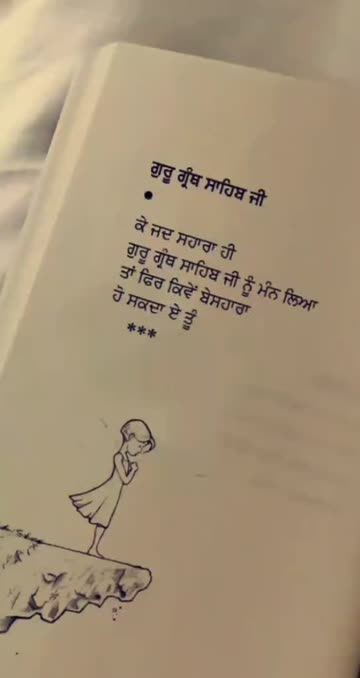 ਗੁਰੂ ਗ੍ਰੰਥ ਸਾਹਿਬ ਜੀ
•
ਕੇ ਜਦ ਸਹਾਰਾ ਹੀ
ਗੁਰੂ ਗ੍ਰੰਥ ਸਾਹਿਬ ਜੀ ਨੂੰ ਮੰਨ ਲਿਆ
ਤਾਂ ਫਿਰ ਕਿਵੇਂ ਬੇਸਹਾਰਾ
ਹੋ ਸਕਦਾ ਏ ਤੂੰ
***